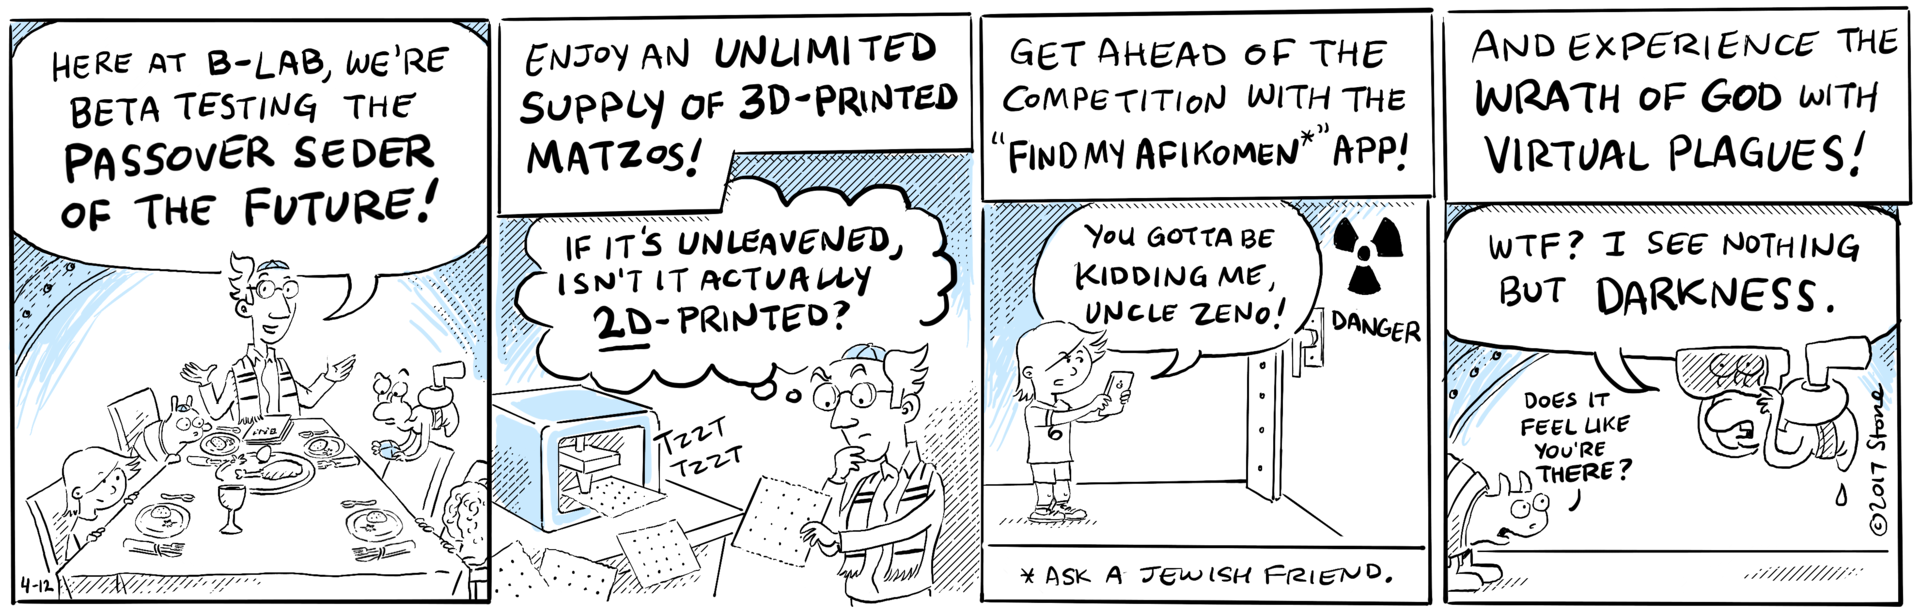 HERE AT B-LAB, WE'RE
BETA TESTING THE
PASSOVER SEDER
OF THE FUTURE!
4-12
ENJOY AN UNLIMITED
SUPPLY OF 3D-PRINTED
MATZOS!
IF IT'S UNLEAVENED,
ISN'T IT ACTUALLY
2D-PRINTED?
TZZT
TZZT
GET AHEAD OF THE
COMPETITION WITH THE
"FIND MY AFIKOMEN*" APP!
YOU GOTTA BE
KIDDING ME,
UNCLE ZENO!
DANGER
*ASK A JEWISH FRIEND.
AND EXPERIENCE THE
WRATH OF GOD WITH
VIRTUAL PLAGUES!
WTF? I SEE NOTHING
BUT DARKNESS.
DOES IT
FEEL LIKE
YOU'RE
THERE?
©2017 Stone